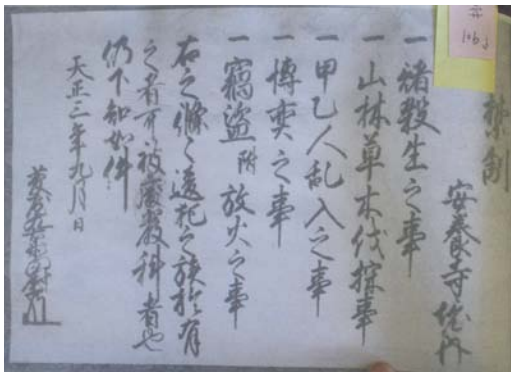 禁制
安養寺境内
一 諸殺生之事
一 山林草木伐採事
一 甲乙人乱入之事
一 博奕之事
一 竊盗附放火之事
右之條々違犯之族於有
之者可被處嚴科者也
仍下知如件
天正三年九月日